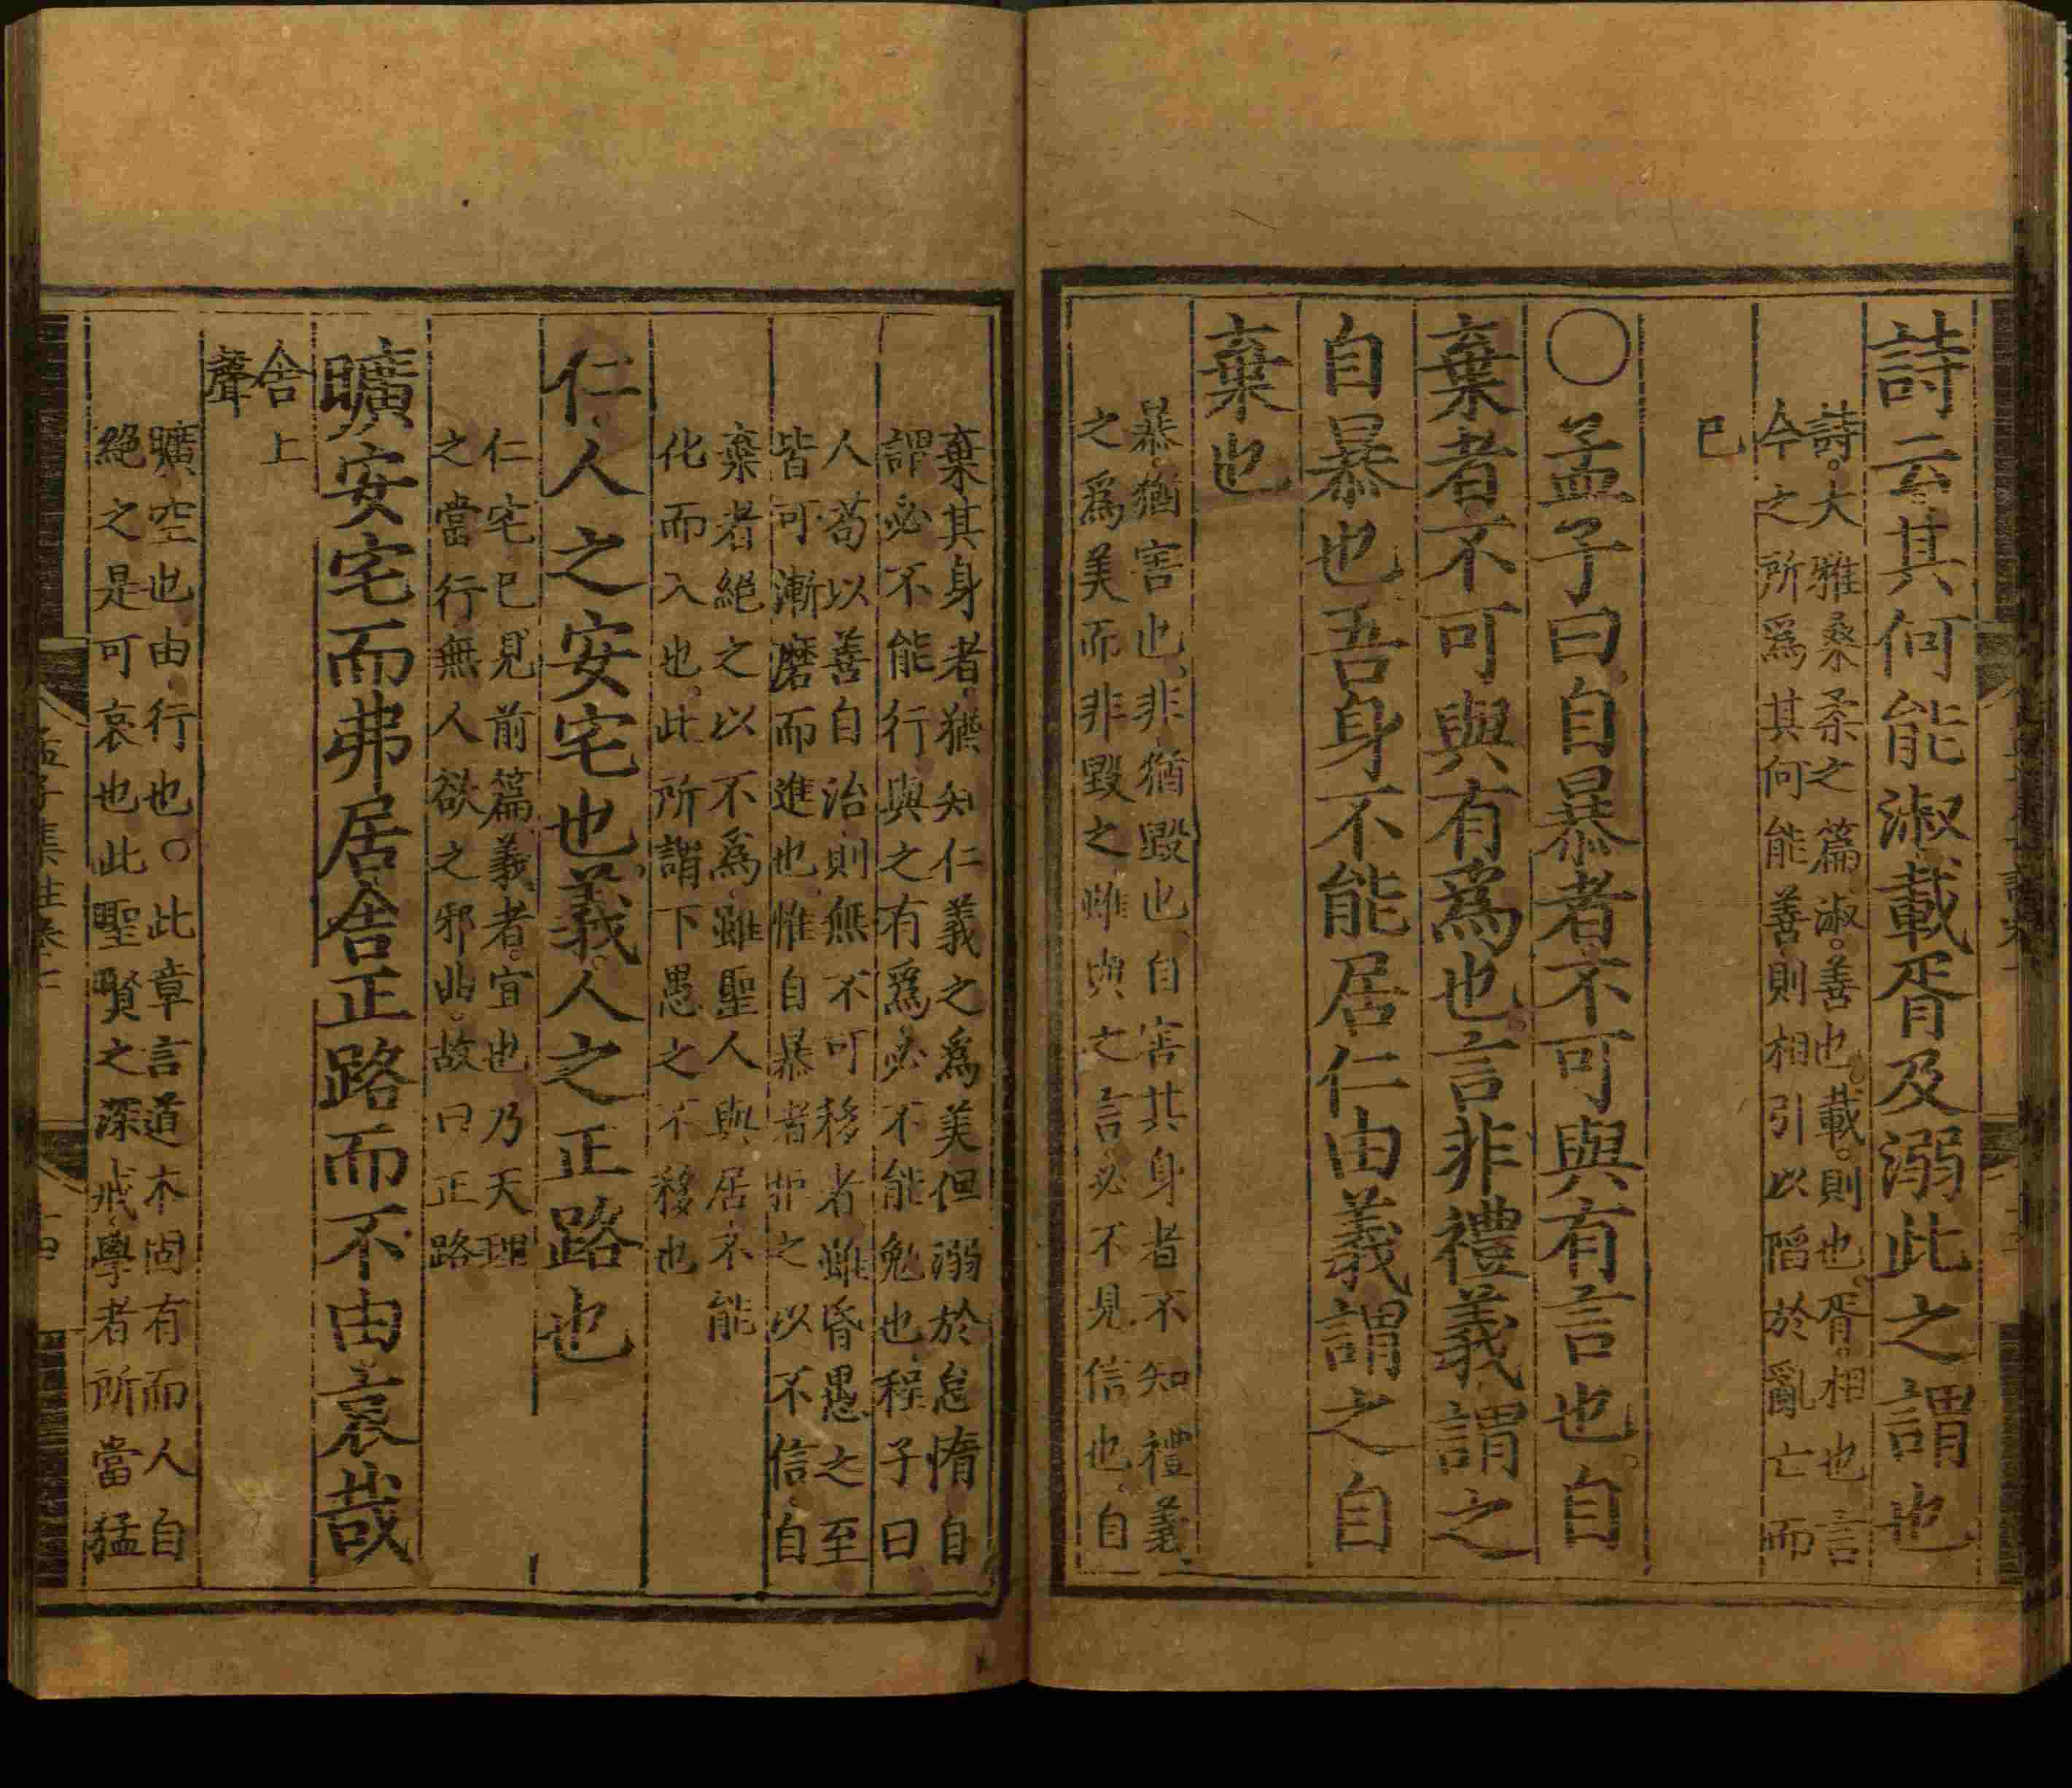 詩云其何能淑載胥及溺此之謂也
詩大雅桑柔之篇淑善也載則也胥相也言
今之所爲其何能善則相引以陷於亂亡而
已
○孟子曰自暴者不可與有言也自
棄者不可與有爲也言非禮義謂之
自暴也吾身不能居仁由義謂之自
棄也
暴猶害也非猶毀也自害其身者不知禮義
之爲美而非毀之雖與之言必不見信也自
棄其身者猶知仁義之爲美但溺於怠惰自
謂必不能行與之有爲必不能勉也程子曰
人苟以善自治則無不可移者雖昏愚之至
皆可漸磨而進也惟自暴者拒之以不信自
棄者絕之以不爲雖聖人與居不能
化而入也此所謂下愚之不移也
仁人之安宅也義人之正路也
仁宅已見前篇義者宜也乃天理
之當行無人欲之邪曲故曰正路
曠安宅而弗居舍正路而不由哀哉
舍上
聲
曠空也由行也○此章言道本固有而人自
絕之是可哀也此聖賢之深戒學者所當猛
孟子集註卷七
十四